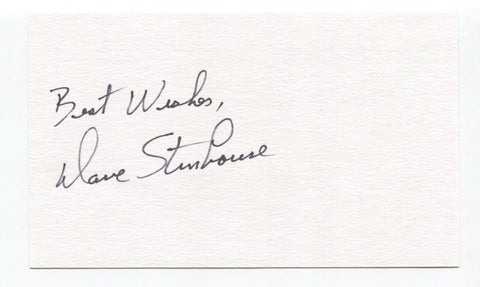 Best Wishes,
Dave Stenhouse